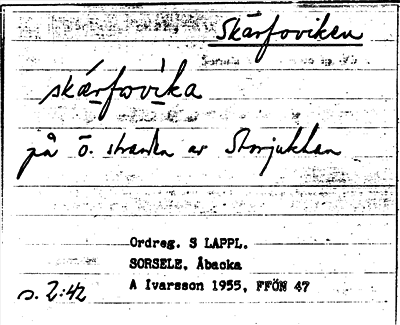 Skärfoviken
skǽrfovìka
på ö. stranden av Storjuktan
Ordreg. S LAPPL.
SORSELE, Åbacka
A Ivarsson 1955, FFÖN 47
s. 2:42